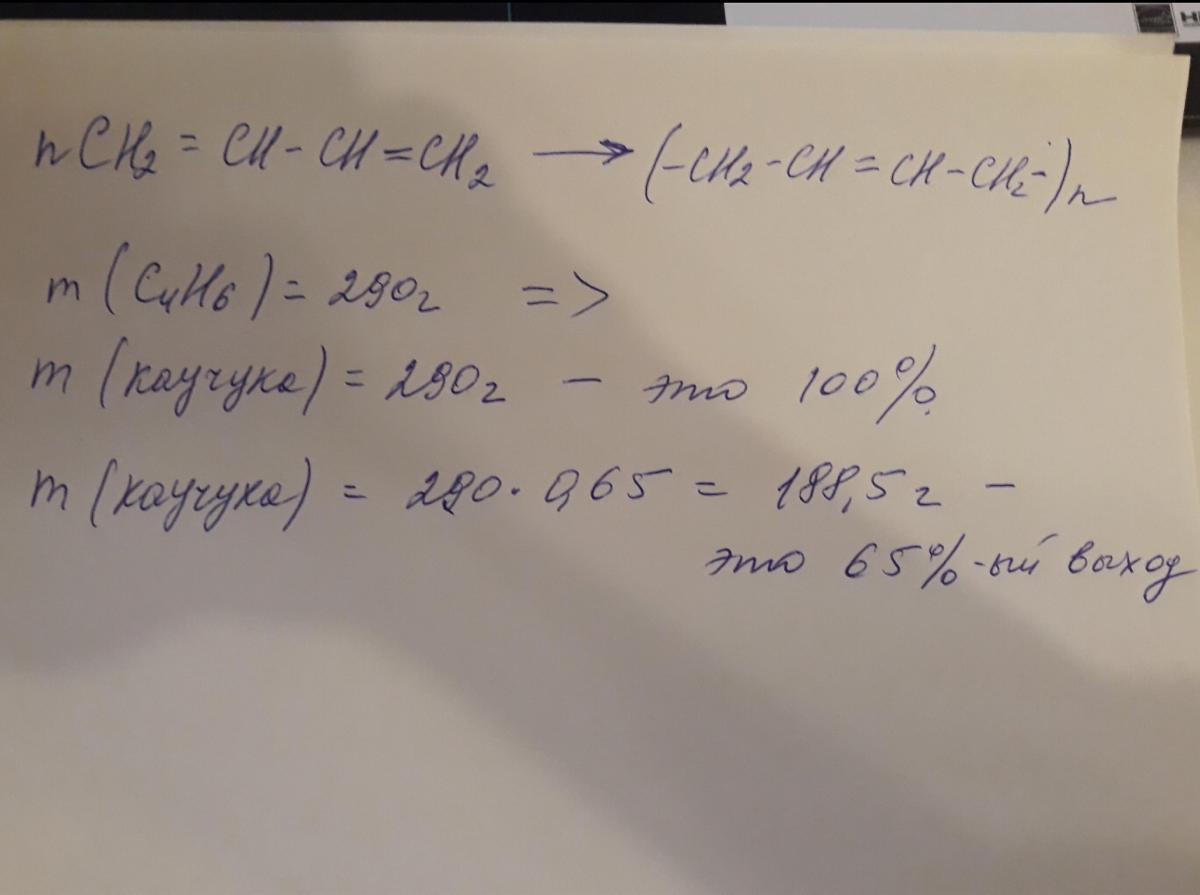 nCH₂ = CH - CH = CH₂ ⟶ (-CH₂-CH = CH-CH₂-)n
m (C₄H₆) = 290г =>
m (каучука) = 290г - это 100%
m (каучука) = 290 · 0,65 = 188,5 г -
это 65%-ый выход